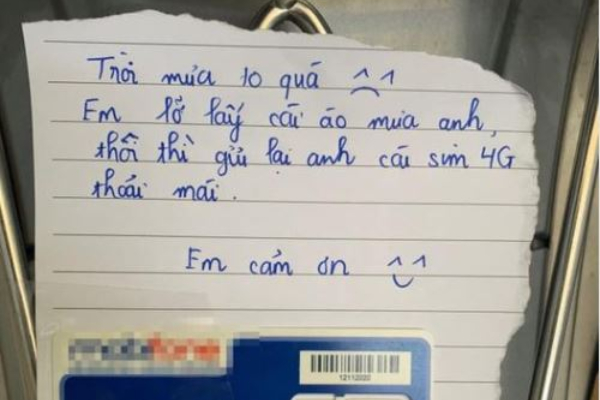 Trời mưa to quá ^^
Em lỡ lấy cái áo mưa anh,
thôi thì gửi lại anh cái sim 4G
thoải mái.
Em cảm ơn ^^
12112020